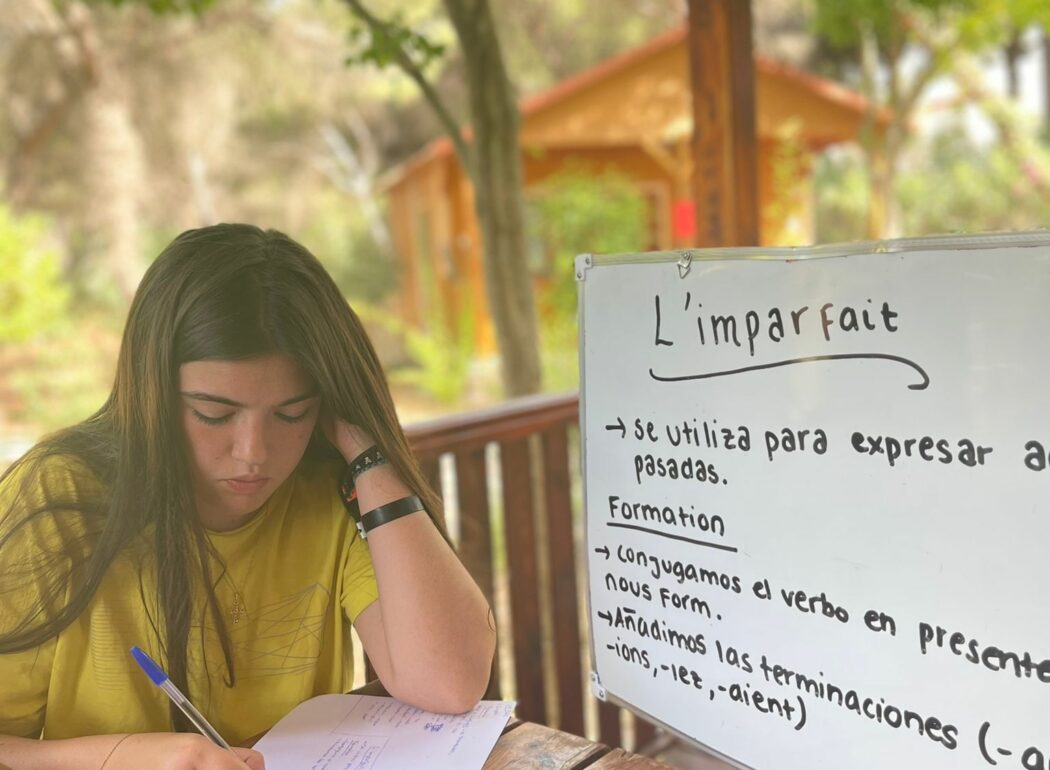 L'imparfait
→ se utiliza para expresar
pasadas.
Formation
→ conjugamos el verbo en presente
nous form.
→ Añadimos las terminaciones (-a
-ions, -iez, -aient)